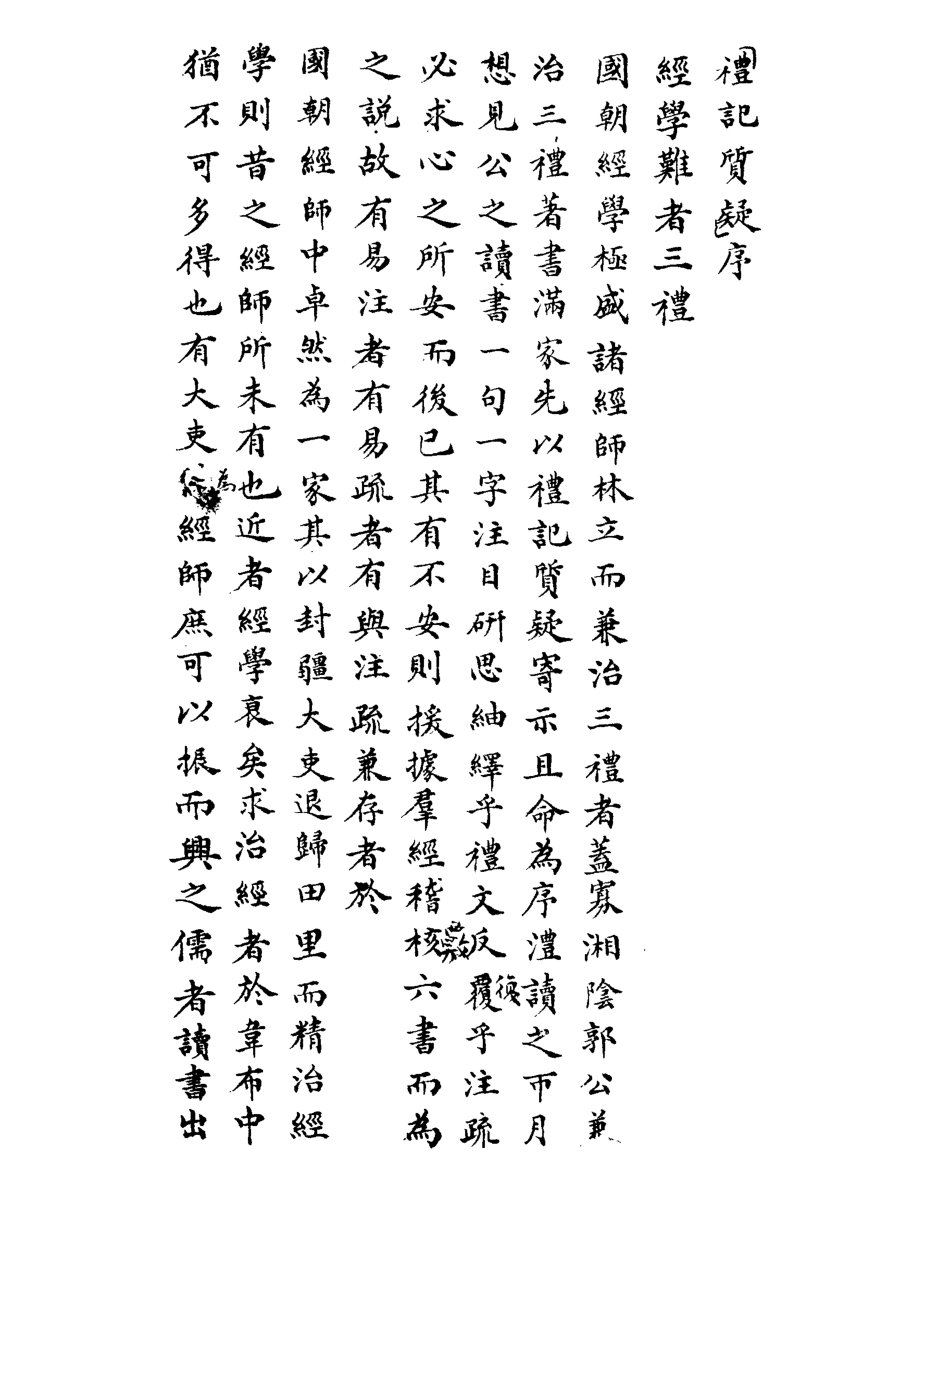 禮記質疑序
經學難者三禮
國朝經學極盛諸經師林立而兼治三禮者蓋寡湘陰郭公兼
治三禮著書滿家先以禮記質疑寄示且命為序澧讀之帀月
想見公之讀書一句一字注目研思紬繹乎禮文反覆乎注疏
必求心之所安而後已其有不安則援據羣經稽核六書而為
之説故有易注者有易疏者有與注疏兼存者於
國朝經師中卓然為一家其以封疆大吏退歸田里而精治經
學則昔之經師所未有也近者經學衰矣求治經者於韋布中
猶不可多得也有大吏為經師庶可以振而興之儒者讀書出